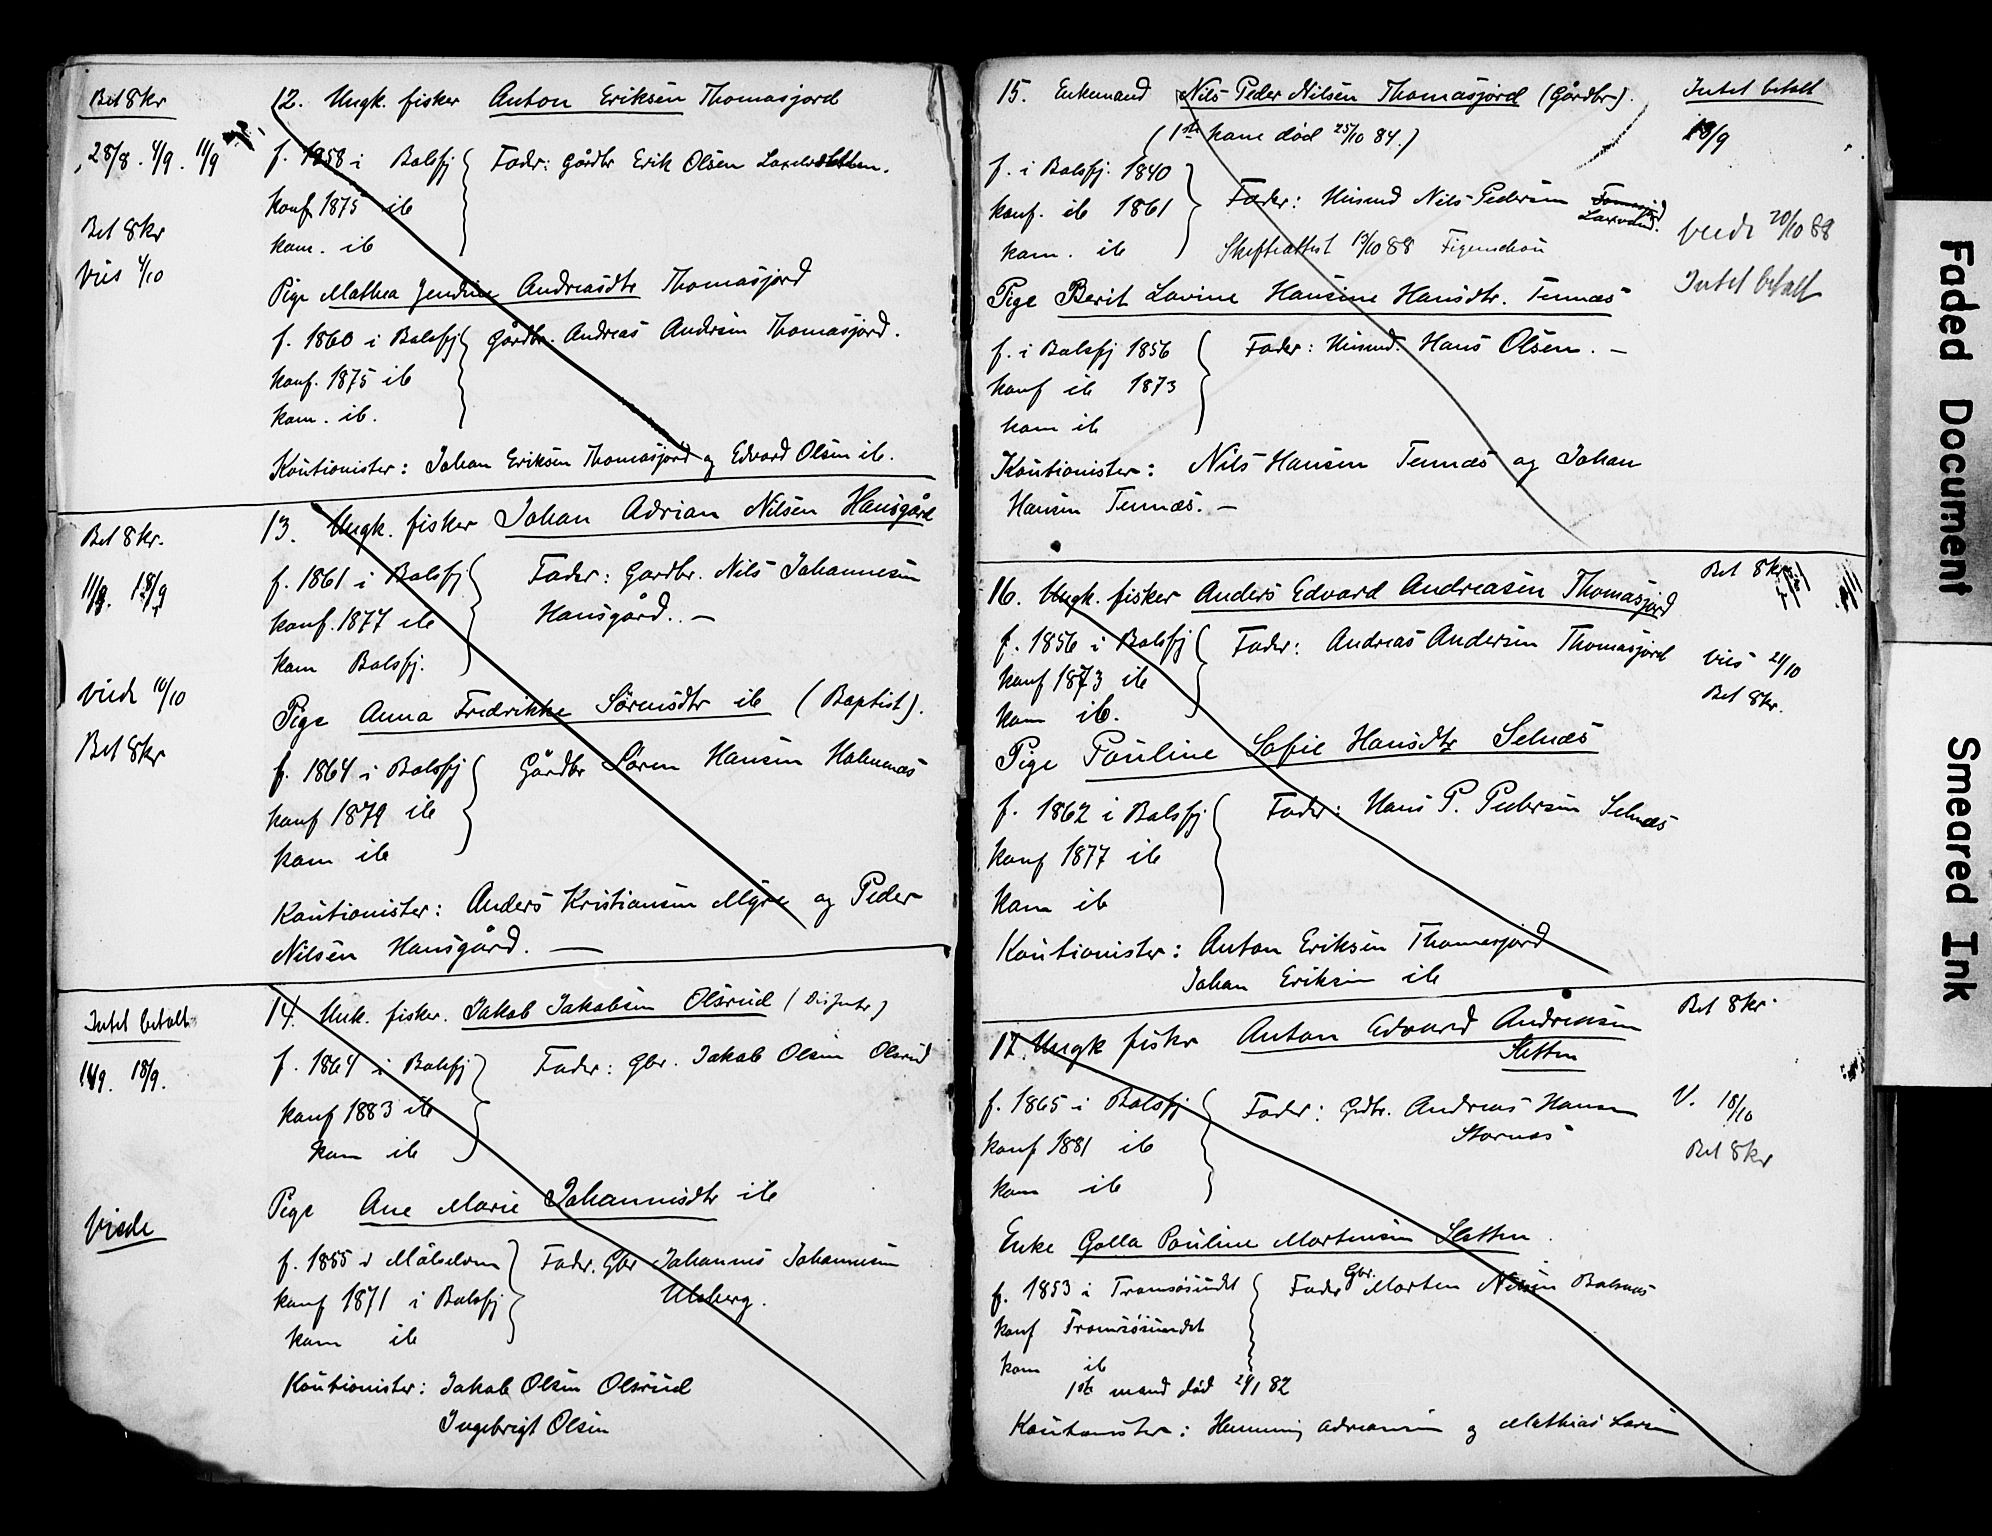 Bet 8 kr
28/8. 4/9. 11/9
Bet 8 kr
Vies 4/10
12. Ungk. fisker Anton Eriksen Thomasjord
f. 1858 i Balsfj Fader: Gårdbr Erik Olsen
konf 1875 ib
kom. ib
Pige Mathea Jendine Andreasdtr Thomasjord
f. 1860 i Balsfj Gårdbr. Andreas Andersen Thomasjord.
konf. 1875 ib
kom. ib.
Kautionister: Johan Eriksen Thomasjord og Edvard Olsen ib.
Bet 8 kr.
11/9. 18/9
Viede 10/10
Bet 8 kr
13. Ungk. fisker Johan Adrian Nilsen Hansgård
f. 1861 i Balsfj Fader: Gardbr. Nils Johannesen
konf. 1877 ib Hansgård. –
kom Balsfj.
Pige Anna Fredrikke Sørensdtr ib (Baptist).
f. 1864 i Balsfj Gårdbr Søren Hansen Holmenæs
konf 1879 ib
kom ib
Kautionister: Anders Kristiansen Myre og Peder
Nilsen Hansgård. —
Intet betalt
11/9. 18/9.
Viede
14. Unk. fisker. Jakob Jakobsen Olsrud (Disjentr)
f. 1864 i Balsfj Fader: Gbr. Jakob Olsen Olsrud
konf 1883 ib
kom ib
Pige Ane Marie Johannesdtr ib
f. 1855 i Målselven Fader. Gbr Johannes Johannesen
konf 1871 i Balsfj Ulsberg.
kom ib
Kautionister: Jakob Olsen Olsrud
Ingebrigt Olsen
15. Enkemand Nils Peder Nilsen Thomasjord (Gårdbr).
(1ste kone død 25/10 84.)
f. i Balsfj. 1840
konf. ib 1861 Fader: Husmd Nils Pedersen Tomasjord
Laxvand.
kom. ib Skifteattest 13/10 88 Figenschou
Pige Berit Lavine Hansine Hansdtr. Tennæs
f. i Balsfj 1856 Fader: Husmd. Hans Olsen. –
konf ib 1873
kom ib
Kautionister: Nils Hansen Tennæs og Johan
Hansen Tennæs. –
Intet betalt
18/9
Viede 20/10 88
Intet betalt
16. Ungk. fisker Anders Edvard Andreasen Thomasjord
f. 1856 i Balsfj Fader: Andreas Andersen Thomasjord
konf 1873 ib
kom ib.
Pige Pauline Sofie Hansdtr Selnæs
f. 1862 i Balsfj Fader: Hans P. Pedersen Selnæs
konf 1877 ib
kom ib
Kautionister: Anton Eriksen Thomasjord
Johan Eriksen ib
Bet 8 kr
Vies 21/10
Bet 8 kr.
17. Ungk fisker Anton Edvard Andreasen
Sletten
f. 1865 i Balsfj Fader: Grdbr. Andreas Hansen
konf 1881 ib Stornæs
kom ib
Enke Golla Pauline Mortensen Sletten.
f. 1853 i Tromsøsundet Fader Gbr. Morten Nilsen Balsnæs
konf Tromsøsundet
kom ib
1ste mand død 24/1 82
Kautionister: Henning Adreansen og Mathias Larsen
Bet 8 kr.
V. 18/10
Bet 8 kr
Faded Document
Smeared Ink